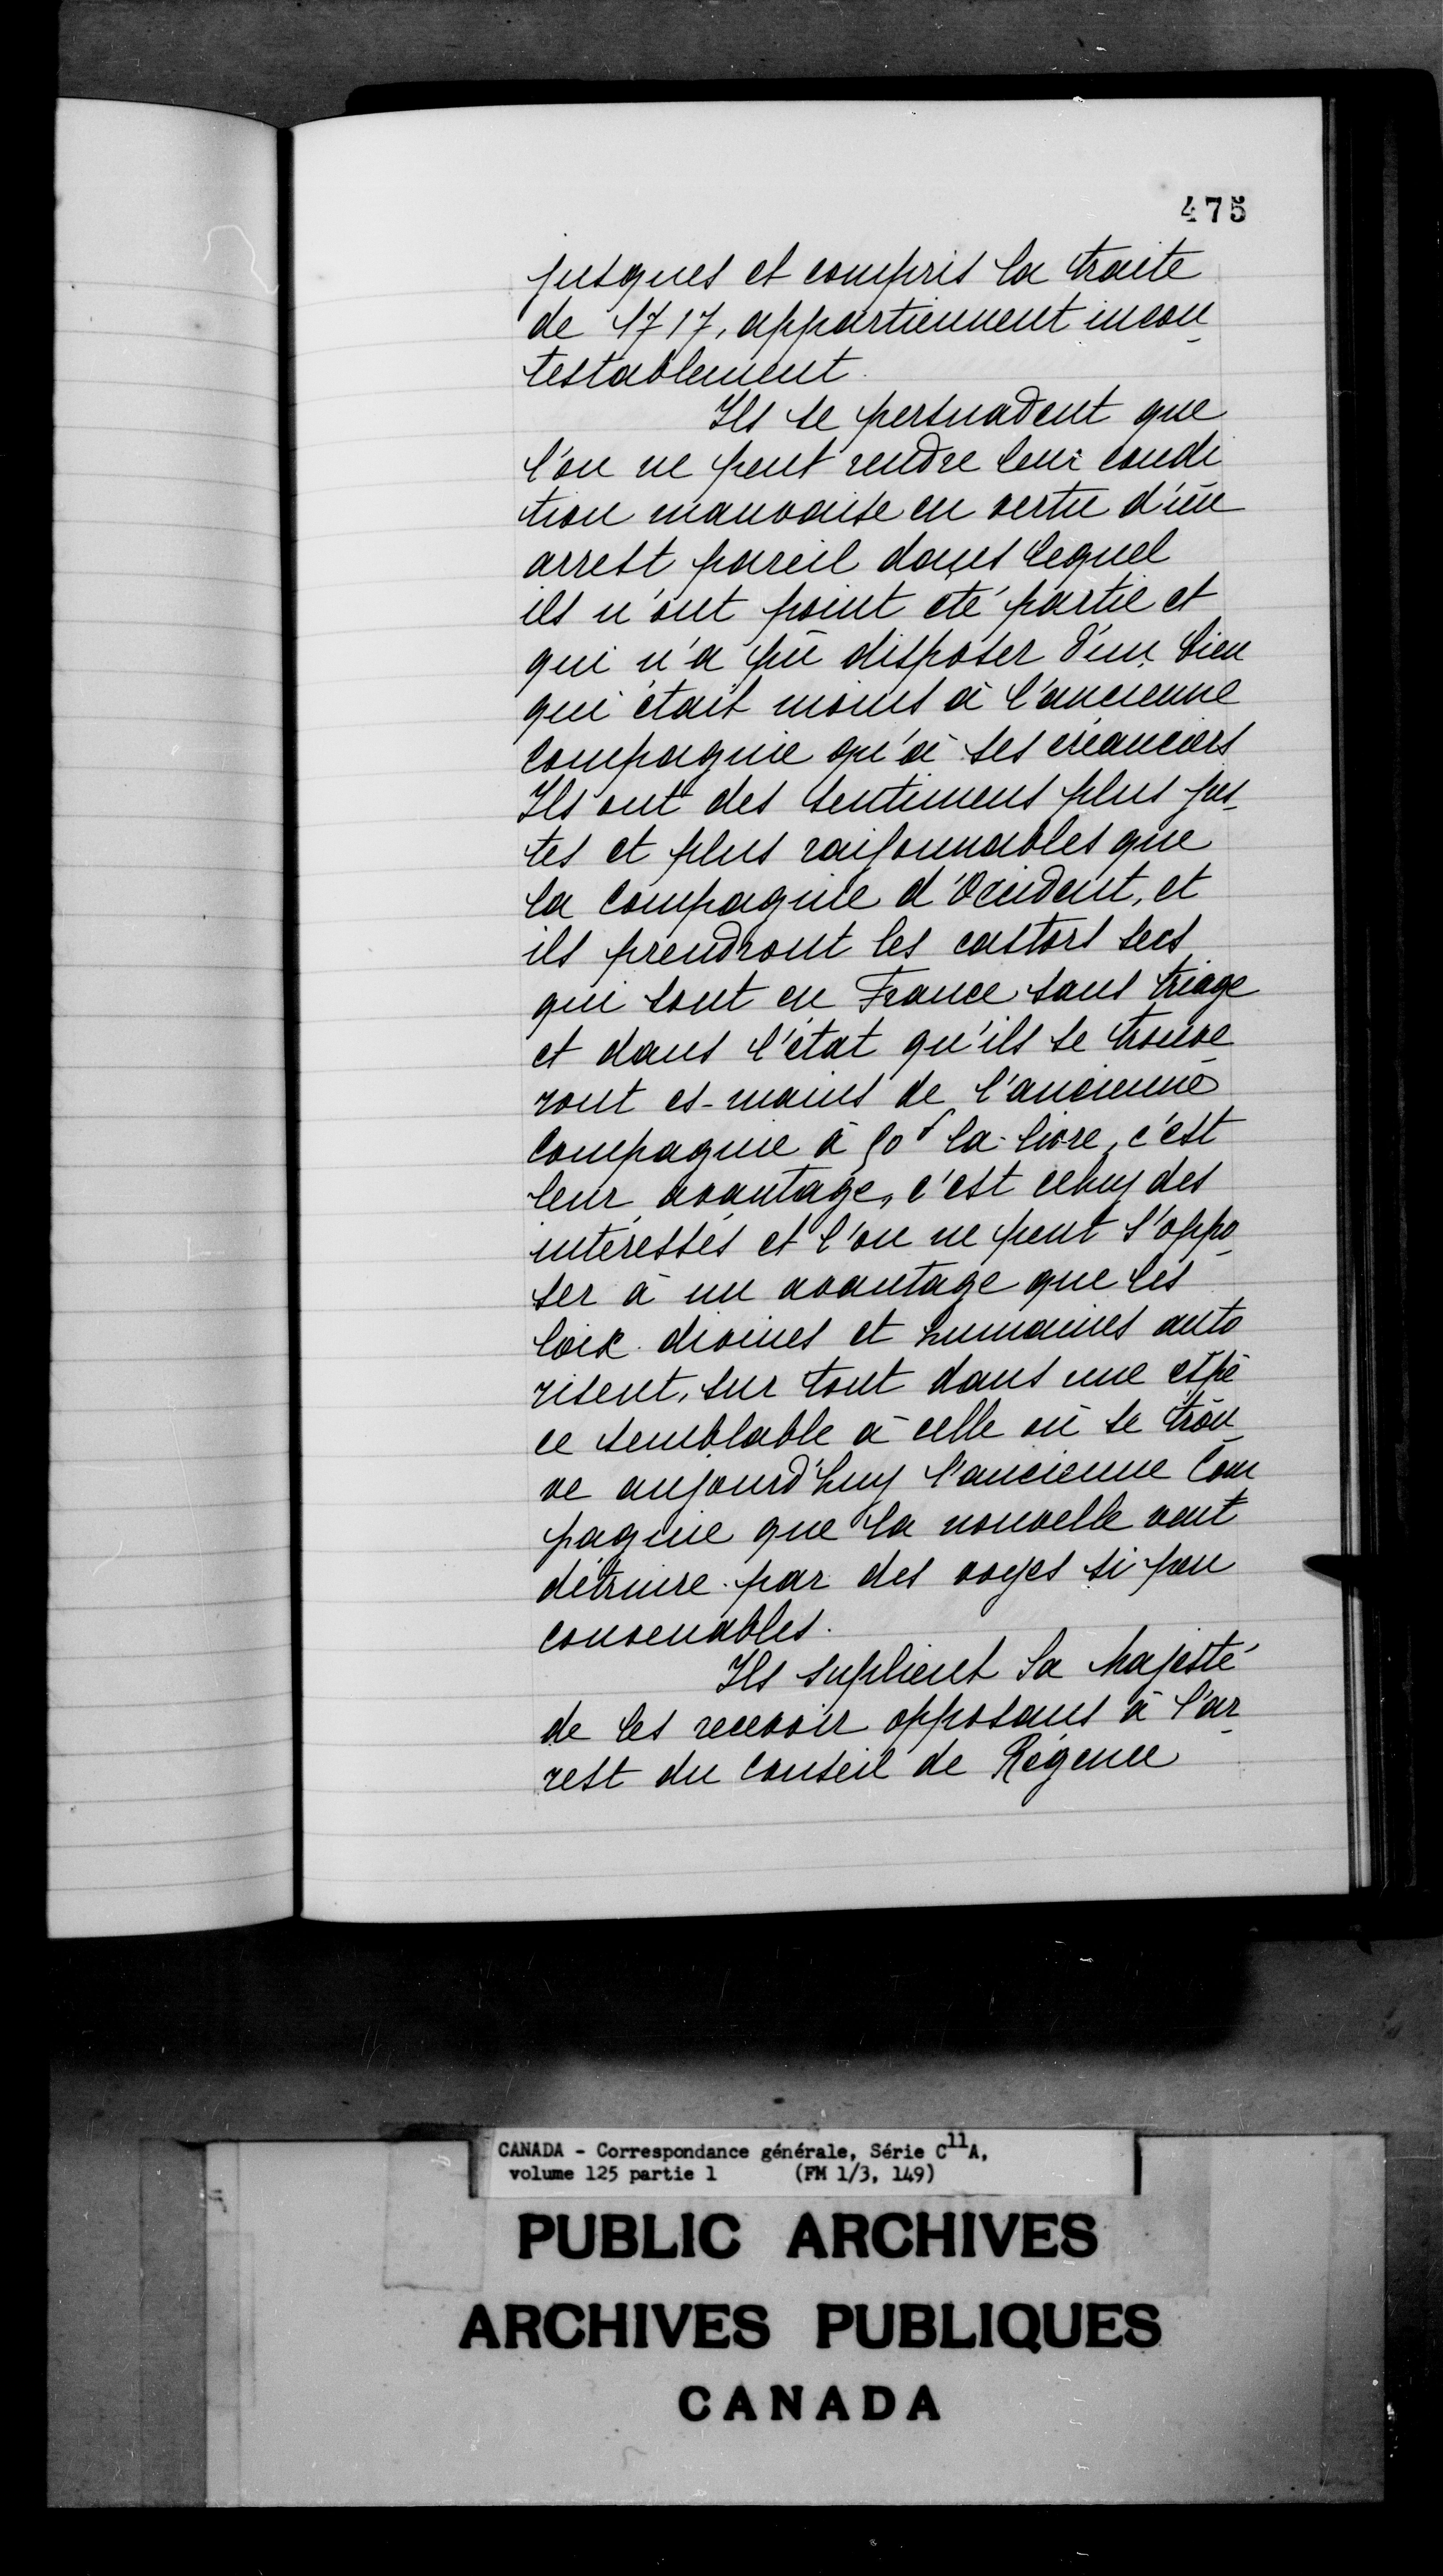 475
jusques et compris la traite
de 1717, appartiennent incon_
testablement.
Ils se persuadent que
l'on ne peut rendre leur condi
tion mauvaise en vertu d'un
arrest pareil dans lequel
ils n'ont point eté partie et
qui n'a pû disposer d'un bien
qui était moins à l'ancienne
compagnie qu'à ses créanciers
Ils ont des sentimens plus jus_
tes et plus raisonnables que
la Compagnie d'Occident, et
ils prendront les castors secs
qui sont en France sans triage
et dans l'état qu'ils se trouve_
ront es-mains de l'ancienne
Compagnie à 50ˢ la livre, c'est
leur avantage, c'est celuy des
intéressés et l'on ne peut s'oppo_
ser à un avantage que les
loix divines et humaines auto
risent, sur tout dans une espè
ce semblable à celle où se trou_
ve aujourd'huy l'ancienne Com
pagnie que la nouvelle veut
détruire par des voyes si peu
convenables.
Ils suplient Sa Majesté
de les recevoir opposans à l'ar_
rest du Conseil de Régence
CANADA - Correspondance générale, Série C11A,
volume 125 partie 1 (FM 1/3, 149)
PUBLIC ARCHIVES
ARCHIVES PUBLIQUES
CANADA